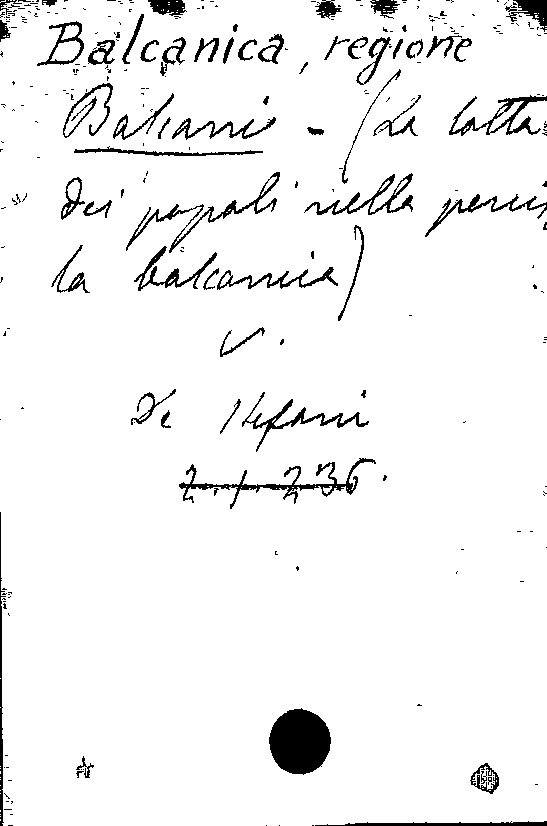 Balcanica, regione
Balcani - (La lotta
dei popoli nella penis
la balcanica)
v.
De Stefani
2.1.236.